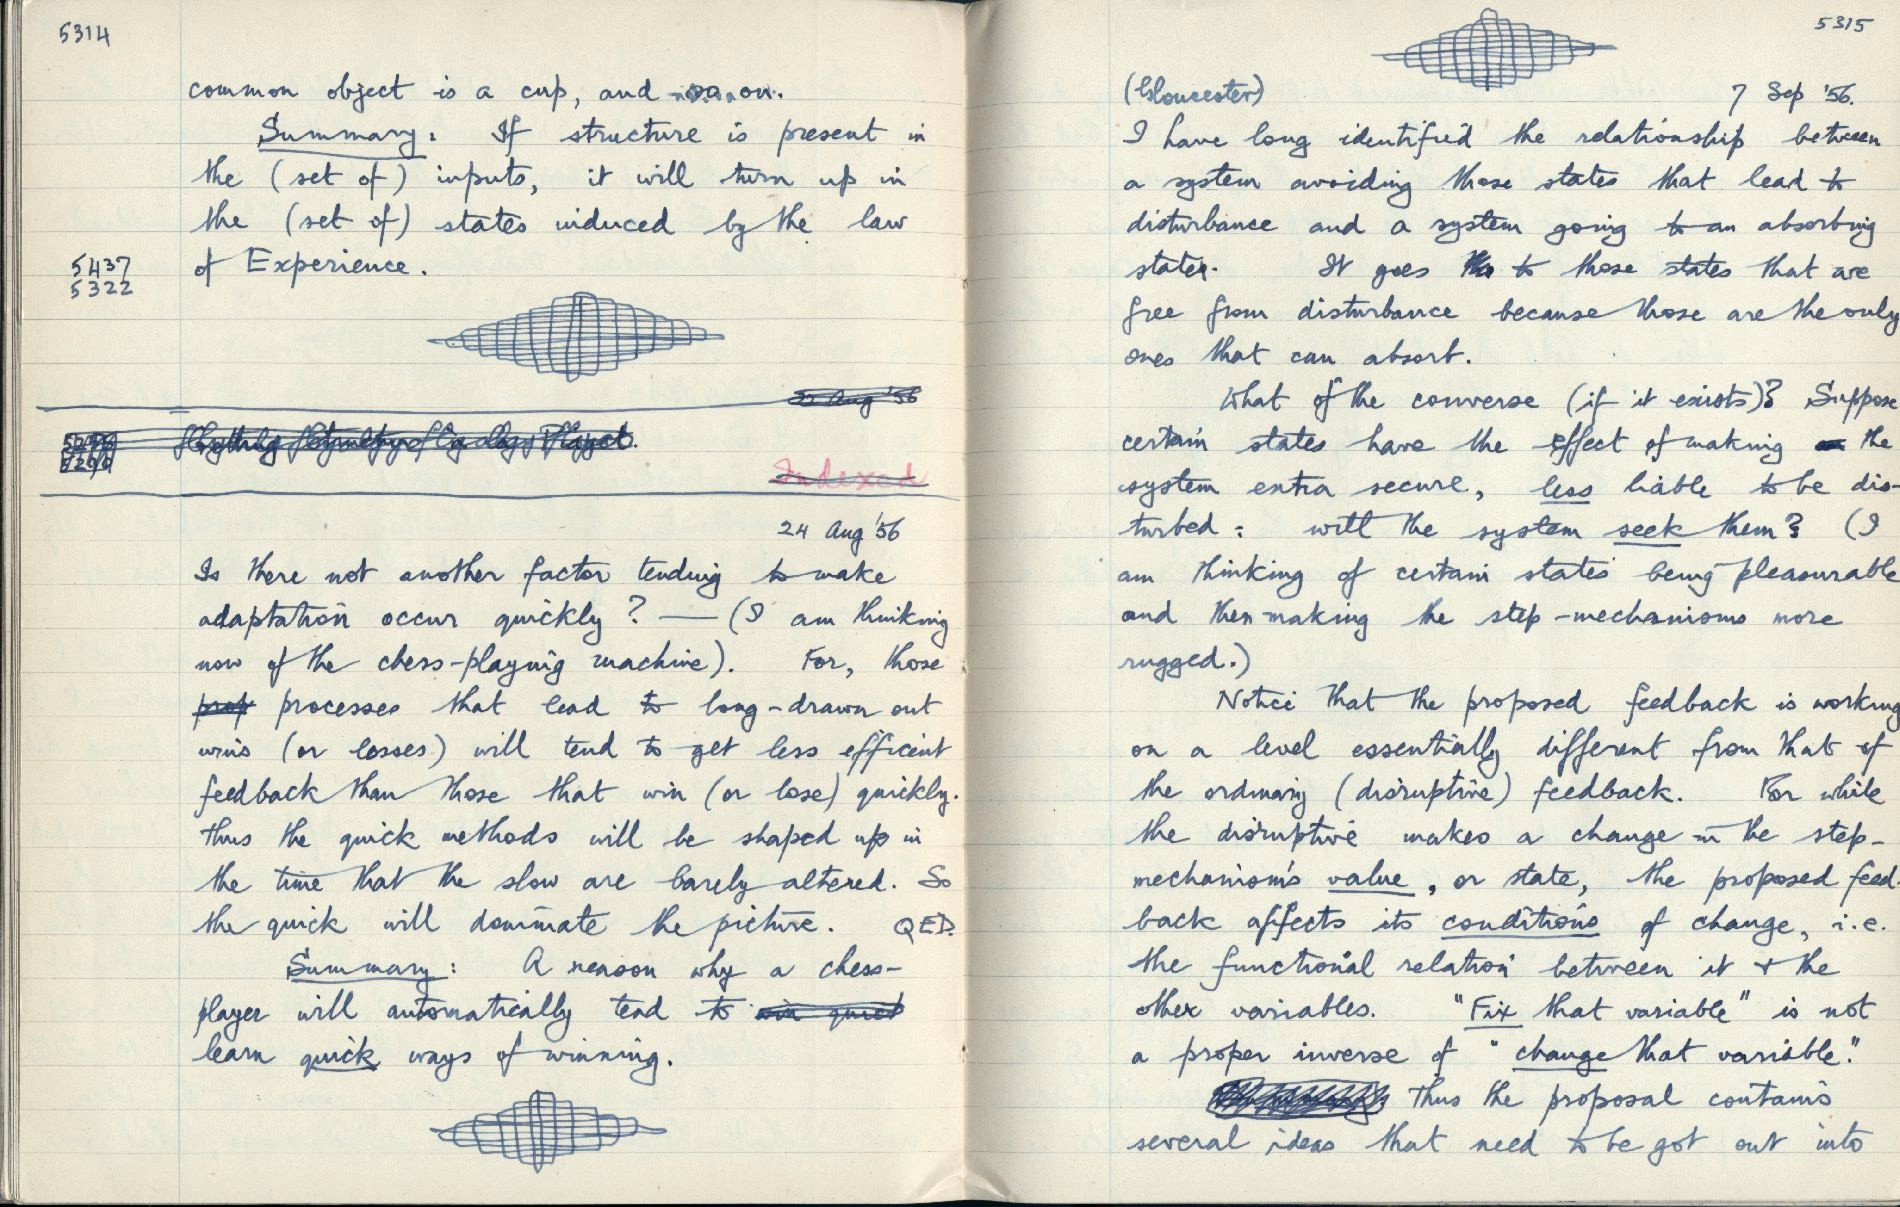 5314
common object is a cup, and so on.
Summary: If structure is present in
the (set of) inputs, it will turn up in
the (set of) states induced by the law
of Experience.
5437
5322
Aug '56
Indexed
24 Aug '56
Is there not another factor tending to make
adaptation occur quickly? — (I am thinking
now of the chess-playing machine). For, those
prop processes that lead to long-drawn out
wins (or losses) will tend to get less efficient
feedback than those that win (or lose) quickly.
Thus the quick methods will be shaped up in
the time that the slow are barely altered. So
the quick will dominate the picture. QED.
Summary: A reason why a chess-
player will automatically tend to win quick
learn quick ways of winning.
5315
(Gloucester) 7 Sep '56.
I have long identified the relationship between
a system avoiding those states that lead to
disturbance and a system going to an absorbing
state. It goes to those states that are
free from disturbance because those are the only
ones that can absorb.
What of the converse (if it exists)? Suppose
certain states have the effect of making the
system extra secure, less liable to be dis-
turbed: will the system seek them? (I
am thinking of certain states being pleasurable
and then making the step-mechanisms more
rugged.)
Notice that the proposed feedback is working
on a level essentially different from that of
the ordinary (disruptive) feedback. For while
the disruptive makes a change in the step-
mechanism's value, or state, the proposed feed-
back affects its conditions of change, i.e.
the functional relation between it + the
other variables. "Fix that variable" is not
a proper inverse of "change that variable".
Thus the proposal contains
several ideas that need to be got out into